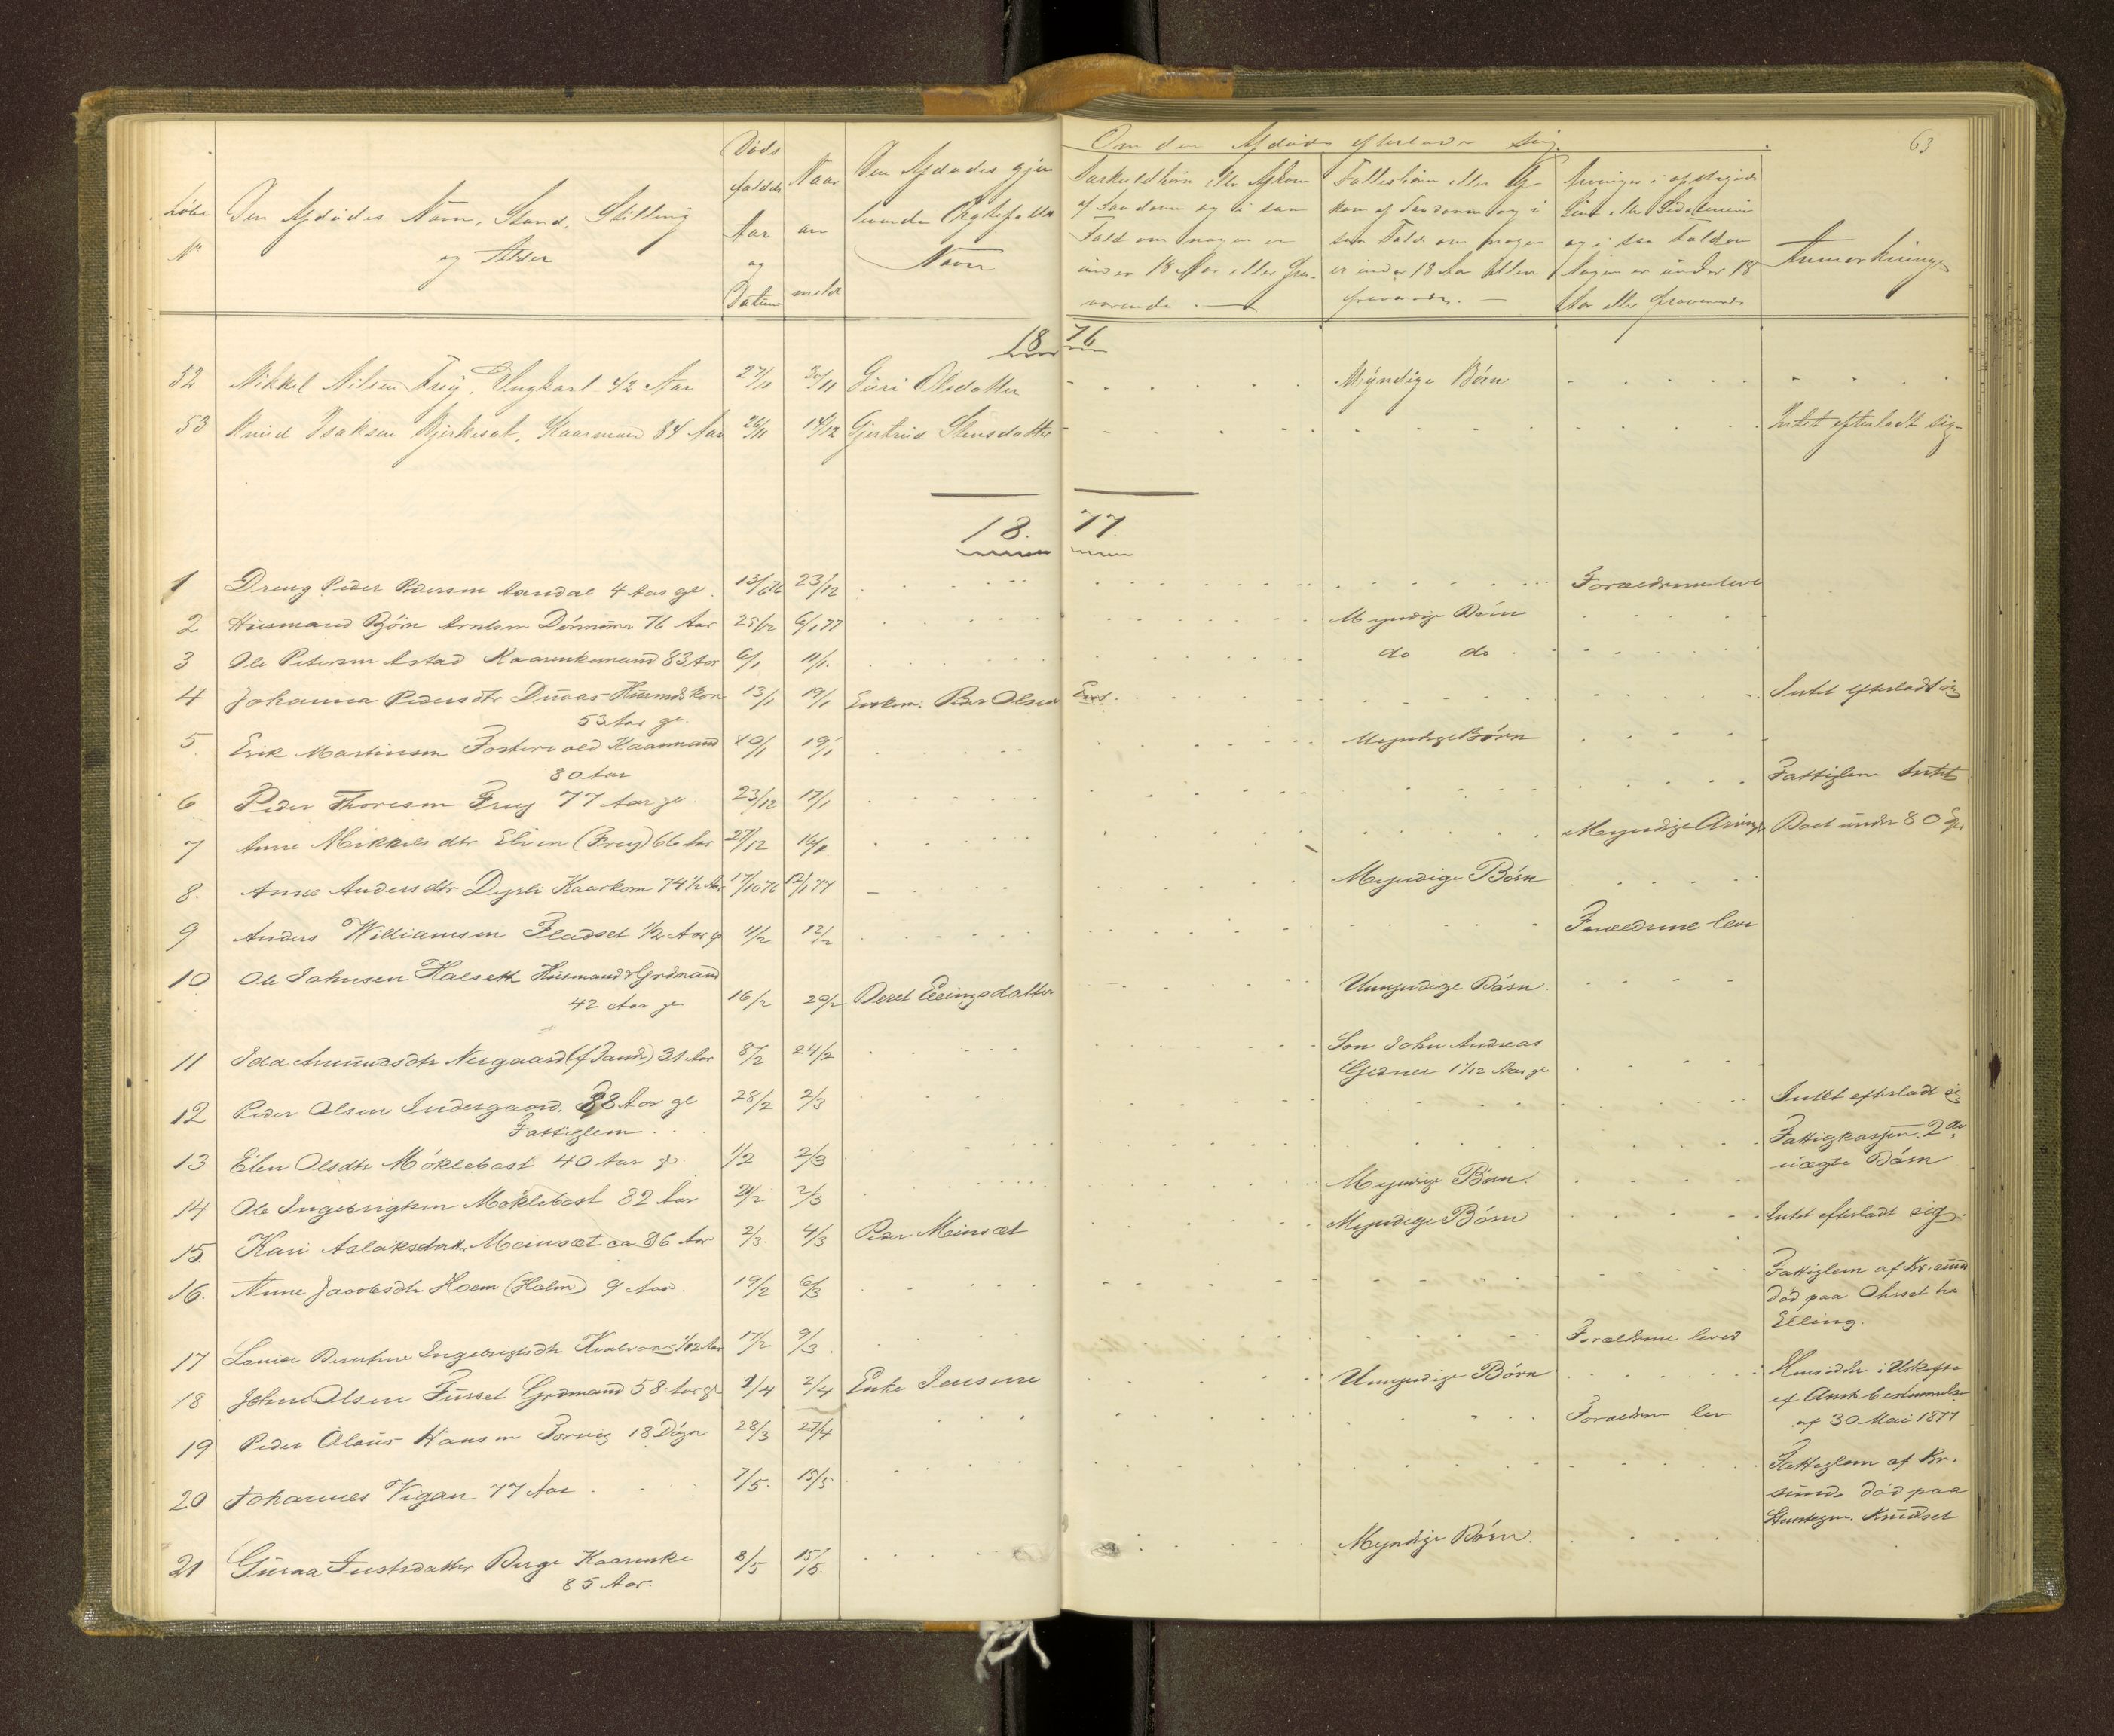 63
Løbe
No
Den Afdødes Navn, Stand, Stilling
og Alder
Døds
faldets
Aar
og
Datum
Naar
an
meldt
Den Afdødes gjen
levende Ægtefælles
Navn
Om den Afdøde efterlader sig
Særkuldbørn eller Afkom
af Saadanne og i saa
Fald om nogen er
under 18 Aar eller fra-
værende.
Fællesbørn eller Af-
kom af Saadanne og i
saa Fald om nogen
er under 18 Aar eller
fraværende.
Arvinger i opstigende
Linie eller Sidelinien
og i saa Fald om
nogen er under 18
Aar eller fraværende
Anmærkninger
1876
52 Mikkel Nilsen Freij, Ungkarl 42 Aar 27/11 30/11 Guri Olsdatter Myndige Børn
53 Knud Isaksen Bjerkesæt, Kaarmand 84 Aar 26/11 14/12 Gjertrud Stensdatter Intet efterladt sig
1877
1 Dreng Peder Pedersen Aandal 4 Aar gl. 13/6 76 23/12 Forældrene leve
2 Husmand Bjørn Arntsen 76 Aar 25/12 6/1 77 Myndige Børn
3 Ole Petersen Astad Kaarenkemand 83 Aar 6/1 11/1 do do
4 Johanna Pedersdtr Husmdskone 13/1 19/1 Enkem. Peder Olsen Intet efterladt sig
53 Aar gl.
5 Erik Martinsen Fostervold Kaarmand 10/1 19/1 Myndige Børn
80 Aar
6 Peder Thoresen Freij 77 Aar gl 23/12 17/1 Fattiglem Intet
7 Anne Mikkelsdtr (Freij) 66 Aar 27/12 16/1 Myndige Arvinger Boet under 80
8. Anne Andersdtr Dyrli Kaarkone 74 1/2 Aar 17/10 76 12/1 77 Myndige Børn
9 Anders Williamsen Fladset 1/2 Aar gl 4/2 12/2 Forældrene leve
10 Ole Johnsen Halseth Husmand & Grdmand
42 Aar gl 16/2 20/2 Beret Ellingsdatter Umyndige Børn
11 Ida Amundsdtr Nergaard 31 Aar 8/2 24/2 Søn John Andreas
1 1/12 Aar gl
12 Peder Olsen Indergaard 88 Aar gl 28/2 2/3 Intet efterladt sig
Fattiglem
13 Elen Olsdtr Møklebost 40 Aar gl 1/2 2/3 Fattigkassen. 2de
uægte Børn
14 Ole Ingebrigtsen Møklebost 82 Aar 21/2 2/3 Myndige Børn
15. Kari Aslaksdatter Meinsæt ca 86 Aar 2/3 4/3 Peder Meinsæt Myndige Børn Intet efterladt sig.
16. Anne Jacobsdtr Hoem (Holm) 9 Aar 19/2 6/3 Fattiglem af Kr.sund
død paa Ohrset hos
Elling.
17 Louise Ingebrigtsdtr Kvalvaag 1/12 Aar 17/2 9/3 Forældrene lever
18 John Olsen Furset Grdmand 58 Aar gl 2/4 2/4 Enke Umyndige Børn Hensidder i Uskifte
af Amtsbestemmelse
af 30 Mai 1877
19 Peder Olaus Hansen 18 Døgn 28/3 27/4 Forældrene lev
20 Johannes Vigan 77 Aar 7/5 15/5 Fattiglem af Kr.
sund død paa
Knudset
21 Guraa Justsdatter Berge Kaarenke 8/5 15/5 Myndige Børn.
85 Aar.